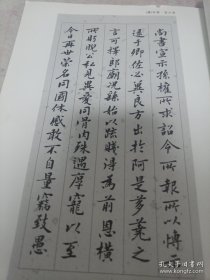 尚書宣示孫權所求詔令所報所以博示
逮于卿佐必冀良方出於阿是芻蕘之
言可擇郎廟況繇始以疏賤得為前恩橫
所盻睨公私見異愛同骨肉殊遇厚寵以至
今日再世榮名同國休慼敢不自量竊致愚